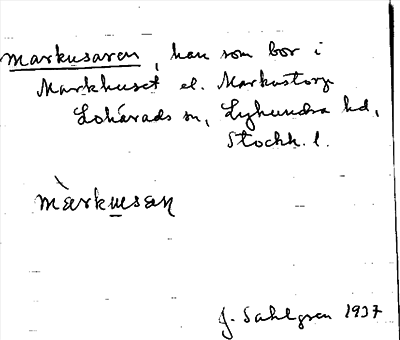 Markusaren, han som bor i
Markhuset el. Markustorp
Lohärads sn, Lyhundra hd,
Stockh. l.
màrkusaṉ
J. Sahlgren 1937